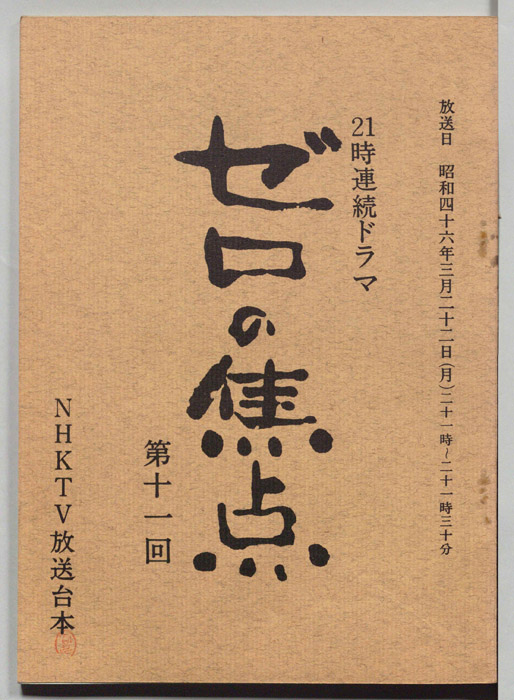 放送日 昭和四十六年三月二十二日(月)二十一時~二十一時三十分
21時連続ドラマ
ゼロの焦点
第十一回
NHKTV放送台本